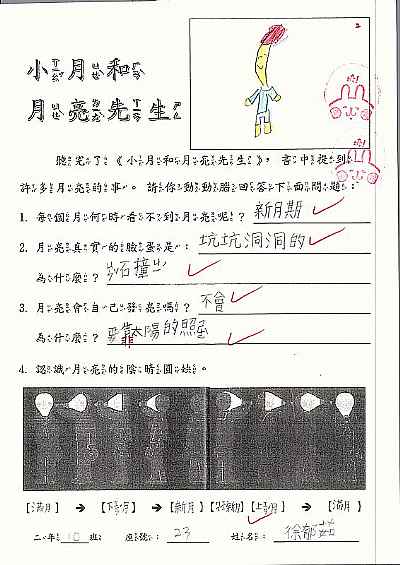 小月和
月亮先生
聽完了《小月和月亮先生》，書中提到
許多月亮的事。請你動動腦回答下面問題：
1. 每個月何時看不到月亮呢？新月期
2. 月亮真實的臉蛋是：坑坑洞洞的
為什麼？石撞出
3. 月亮會自己發亮嗎？不會
為什麼？靠太陽的照
4. 認識月亮的陰晴圓缺。
【滿月】→【下弦月】→【新月】【上弦月】→【滿月】
二年10班 座號：23 姓名：徐郁茹